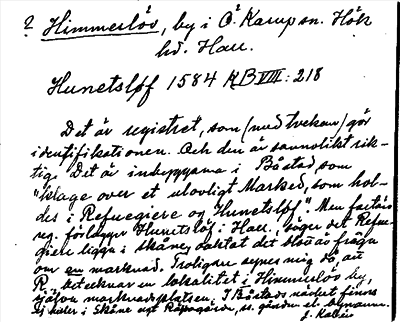 ? Himmerslöv, by i Ö. Karup sn. Höks
hd. Hall.
Hunetsløf 1584 KB VIII: 218
Det är registret, som (med tvekan) gör
identifikationen. Och den är sannolikt rik-
tig. Det är inbyggarna i Båstad som
"klage over et ulovligt Marked, som hol-
des i Refuegiere og Hunetsløf". Men fastän
reg. förlägger Hunetslöf i Hall., säger det Refue-
giere ligga i Skåne, oaktat det blott är fråga
om en marknad. Troligen synes mig då, att
R. betecknar en lokalitet i Himmerslövs by,
själva marknadsplatsen. I Båstads närhet finnes
ej heller i Skåne ngt